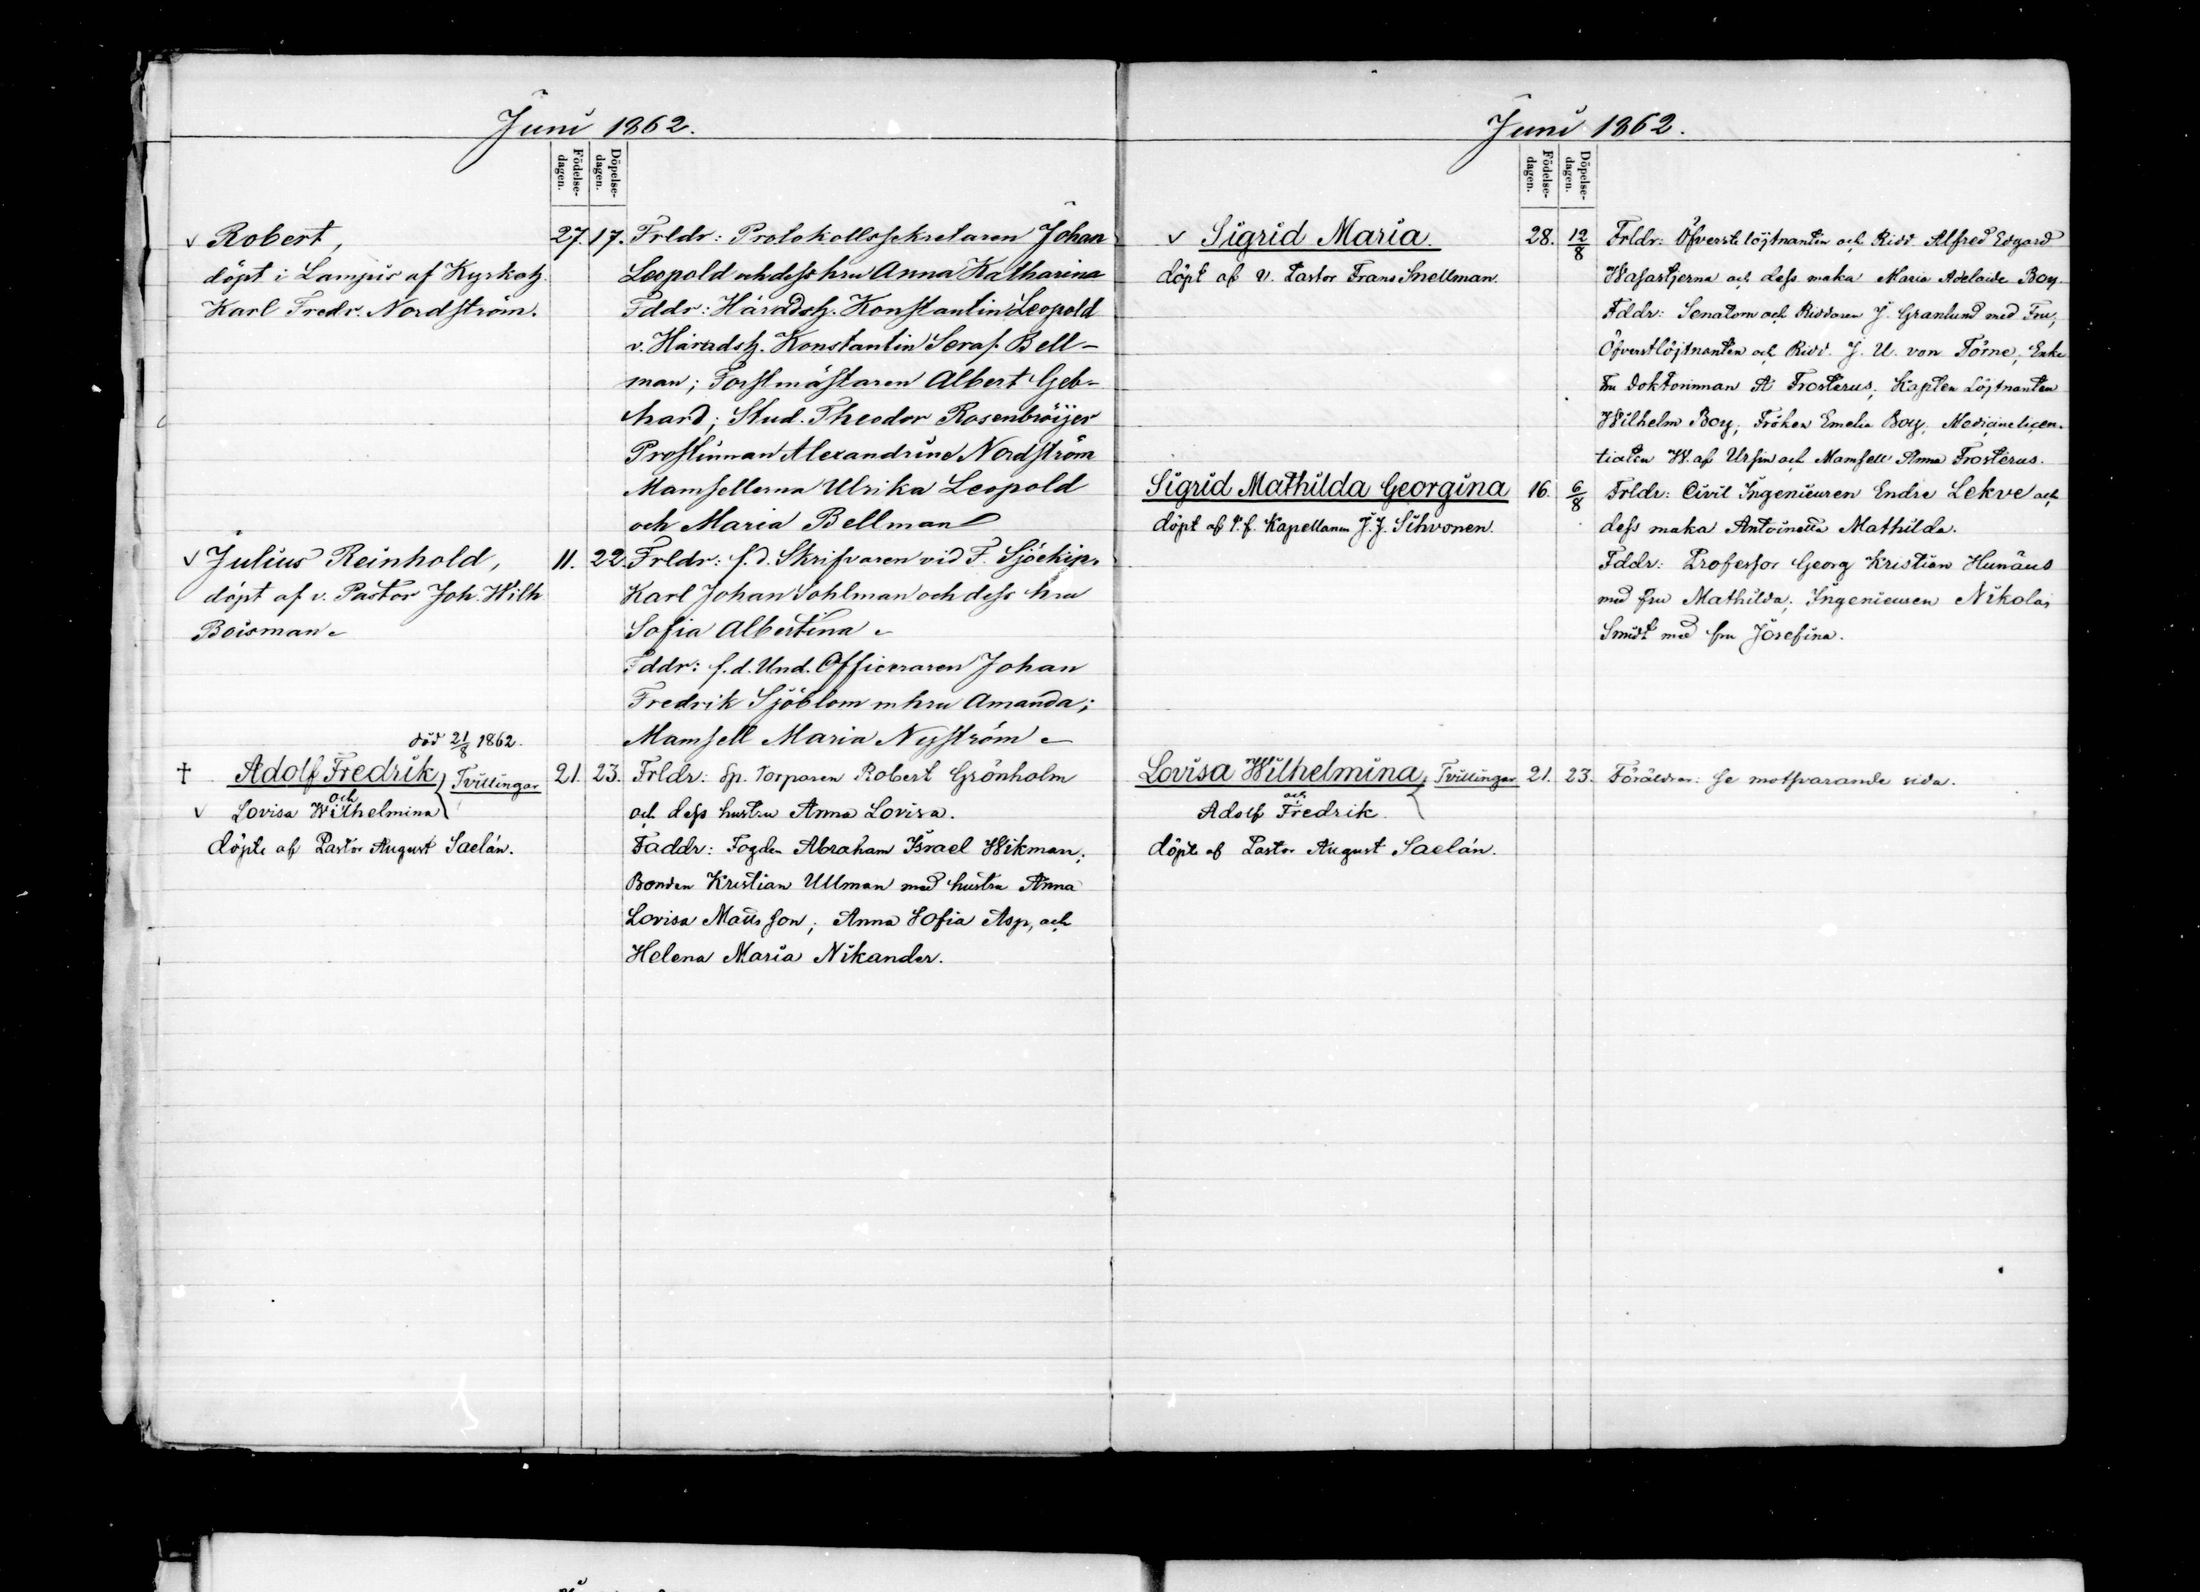 Juni 1862.
Födelse-
dagen.
Döpelse-
dagen.
v Robert,
döpt i Lampis af Kyrkoh.
Karl Fredr. Nordström.
27. 17.
Frldr: Protokollssekretaren Johan
Leopold och dess hru Anna Katharina
Fddr: Häradsh. Konstantin Leopold
v. Häradsh. Konstantin Seraf. Bell-
man; Forstmästaren Albert Geb-
hard; Stud. Theodor Rosenbröijer
Prostinnan Alexandrine Nordström
Mamsellerna Ulrika Leopold
och Maria Bellman
v Julius Reinhold,
döpt af v. Pastor Joh. Wilh
Boisman.
11. 22.
Frldr: f.d. Skrifvaren vid F. Sjöekip.
Karl Johan Sohlman och dess hru
Sofia Albertina.
Fddr: f.d. Und. Officeraren Johan
Fredrik Sjöblom m hru Amanda;
Mamsell Maria Nyström
död 21/8 1862.
† Adolf Fredrik Tvillingar
och
v Lovisa Wilhelmina
döpte af Pastor August Saelán.
21. 23.
Frldr: Sp. Torparen Robert Grönholm
och dess hustru Anna Lovisa.
Faddr: Fogden Abraham Israel Wikman;
Bonden Kristian Ullman med hustru Anna
Lovisa Matsson; Anna Sofia Asp, och
Helena Maria Nikander.
Juni 1862.
Födelse-
dagen.
Döpelse-
dagen.
v Sigrid Maria.
döpt af v. Pastor Frans Snellman.
28. 12/8
Frldr: Öfverstelöjtnanten och Ridd Alfred Edgard
Wasastjerna och dess maka Maria Adelaide Boy.
Fddr: Senatorn och Riddaren J. Granlund med Fru,
Öfverstlöjtnanten och Ridd. J. U. von Törne, Enke
Fru Doktorinnan A Frosterus, Kapten Löjtnanten
Wilhelm Boy, Fröken Emelie Boy, Medicinelicen-
tiaten W. af Ursin och Mamsell Anna Frosterus.
Sigrid Mathilda Georgina
döpt af t.f. Kapellanen J. J. Sihvonen.
16. 6/8
Frldr: Civil Ingenieuren Endre Lekve och
dess maka Antoinetta Mathilda.
Fddr: Professor Georg Kristian Hunäus
med fru Mathilda; Ingenieuren Nikolai
Smidt med fru Josefina.
Lovisa Wilhelmina Tvillingar
och
Adolf Fredrik.
döpte af Pastor August Saelán.
21. 23.
Föräldrar: se motsvarande sida.